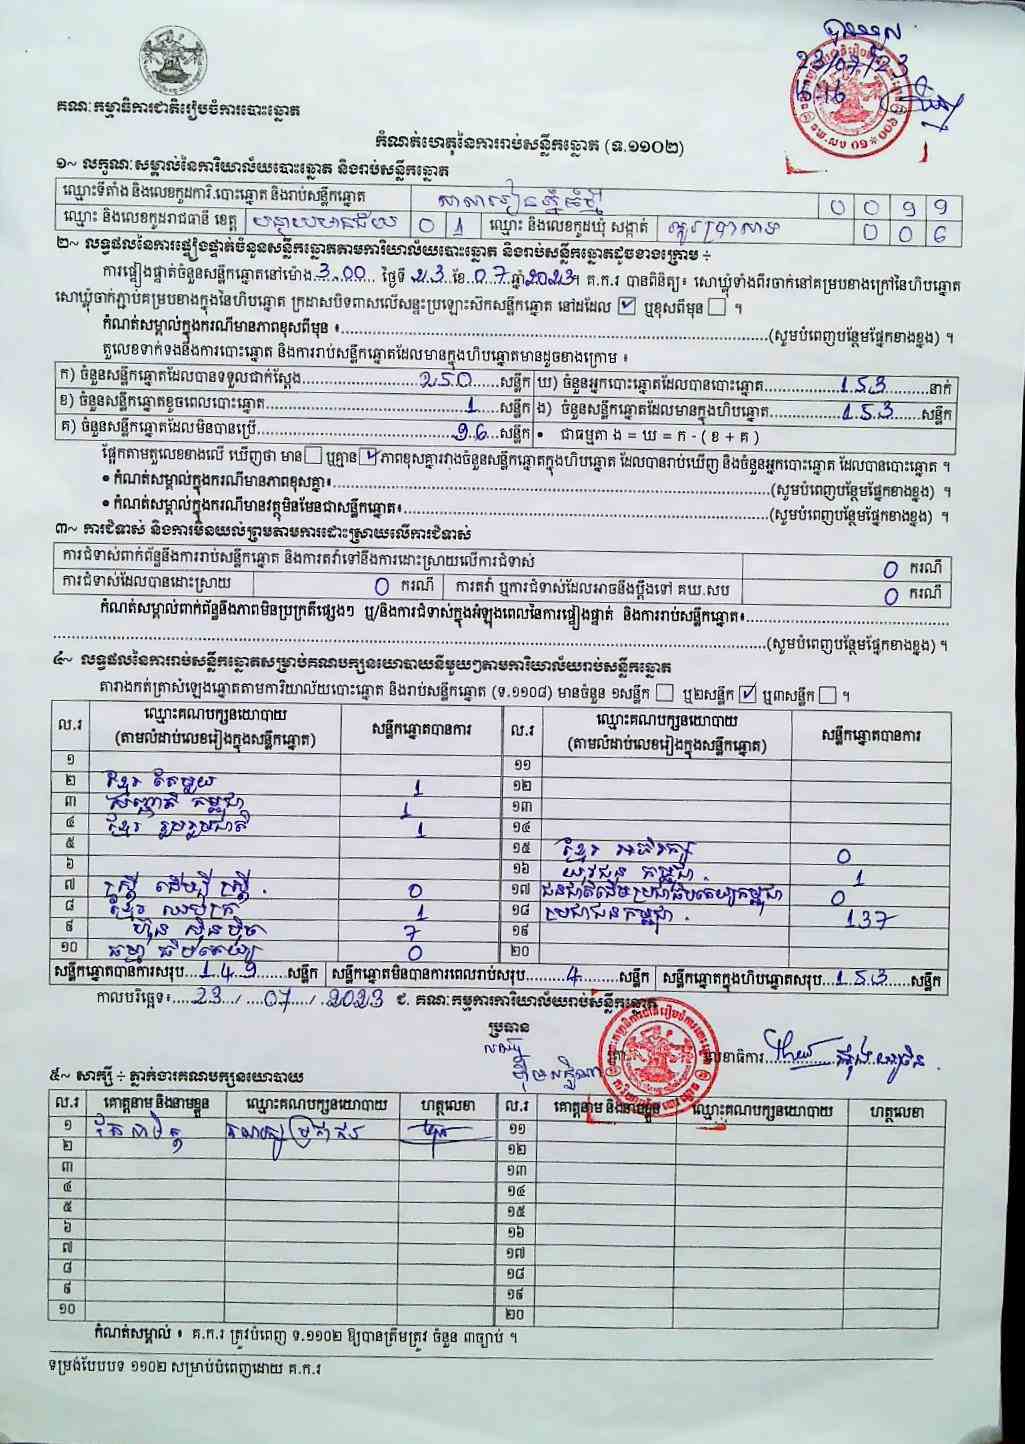 គណៈកម្មាធិការជាតិរៀបចំការបោះឆ្នោត
23/07/23
កំណត់ហេតុនៃការរាប់សន្លឹកឆ្នោត (ទ.១១០២)
១~ លក្ខណៈសម្គាល់នៃការិយាល័យបោះឆ្នោត និងរាប់សន្លឹកឆ្នោត
ឈ្មោះទីតាំង និងលេខកូដការិ.បោះឆ្នោត និងរាប់សន្លឹកឆ្នោត 0 0 9 9
ឈ្មោះ និងលេខកូដរាជធានី ខេត្ត បន្ទាយមានជ័យ 0 1 ឈ្មោះ និងលេខកូដឃុំ សង្កាត់ 0 0 6
២~ លទ្ធផលនៃការផ្ទៀងផ្ទាត់ចំនួនសន្លឹកឆ្នោតតាមការិយាល័យបោះឆ្នោត និងរាប់សន្លឹកឆ្នោតដូចខាងក្រោម ÷
ការផ្ទៀងផ្ទាត់ចំនួនសន្លឹកឆ្នោតនៅម៉ោង 3:00 ថ្ងៃទី 23 ខែ 07 ឆ្នាំ 2023។ គ.ក.រ បានពិនិត្យ៖ សោឃ្លុំទាំងពីរចាក់នៅគម្របខាងក្រៅនៃហិបឆ្នោត
សោឃ្លុំចាក់ភ្ជាប់គម្របខាងក្នុងនៃហិបឆ្នោត ក្រដាសបិទពាសលើសន្ទះប្រឡោះស៊កសន្លឹកឆ្នោត នៅដដែល ☑ ឬខុសពីមុន ☐ ។
កំណត់សម្គាល់ក្នុងករណីមានភាពខុសពីមុន ៖ (សូមបំពេញបន្ថែមផ្នែកខាងខ្នង) ។
តួលេខទាក់ទងនឹងការបោះឆ្នោត និងការរាប់សន្លឹកឆ្នោតដែលមានក្នុងហិបឆ្នោតមានដូចខាងក្រោម ៖
ក) ចំនួនសន្លឹកឆ្នោតដែលបានទទួលជាក់ស្តែង 250 សន្លឹក ឃ) ចំនួនអ្នកបោះឆ្នោតដែលបានបោះឆ្នោត 153 នាក់
ខ) ចំនួនសន្លឹកឆ្នោតខូចពេលបោះឆ្នោត 1 សន្លឹក ង) ចំនួនសន្លឹកឆ្នោតដែលមានក្នុងហិបឆ្នោត 153 សន្លឹក
គ) ចំនួនសន្លឹកឆ្នោតដែលមិនបានប្រើ 96 សន្លឹក • ជាធម្មតា ង = ឃ = ក - ( ខ + គ )
ផ្អែកតាមតួលេខខាងលើ ឃើញថា មាន ☐ ឬគ្មាន ☑ ភាពខុសគ្នារវាងចំនួនសន្លឹកឆ្នោតក្នុងហិបឆ្នោត ដែលបានរាប់ឃើញ និងចំនួនអ្នកបោះឆ្នោត ដែលបានបោះឆ្នោត ។
• កំណត់សម្គាល់ក្នុងករណីមានភាពខុសគ្នា៖ (សូមបំពេញបន្ថែមផ្នែកខាងខ្នង) ។
• កំណត់សម្គាល់ក្នុងករណីមានវត្ថុមិនមែនជាសន្លឹកឆ្នោត៖ (សូមបំពេញបន្ថែមផ្នែកខាងខ្នង) ។
៣~ ការជំទាស់ និងការមិនយល់ព្រមតាមការដោះស្រាយលើការជំទាស់
ការជំទាស់ពាក់ព័ន្ធនឹងការរាប់សន្លឹកឆ្នោត និងការតវ៉ាទៅនឹងការដោះស្រាយលើការជំទាស់ 0 ករណី
ការជំទាស់ដែលបានដោះស្រាយ 0 ករណី ការតវ៉ា ឬការជំទាស់ដែលអាចនឹងប្តឹងទៅ គឃ.សប 0 ករណី
កំណត់សម្គាល់ពាក់ព័ន្ធនឹងភាពមិនប្រក្រតីផ្សេងៗ ឬ/និងការជំទាស់ក្នុងអំឡុងពេលនៃការផ្ទៀងផ្ទាត់ និងការរាប់សន្លឹកឆ្នោត៖
(សូមបំពេញបន្ថែមផ្នែកខាងខ្នង) ។
៤~ លទ្ធផលនៃការរាប់សន្លឹកឆ្នោតសម្រាប់គណបក្សនយោបាយនីមួយៗតាមការិយាល័យរាប់សន្លឹកឆ្នោត
តារាងកត់ត្រាសំឡេងឆ្នោតតាមការិយាល័យបោះឆ្នោត និងរាប់សន្លឹកឆ្នោត (ទ.១១០៨) មានចំនួន ១សន្លឹក ☐ ឬ២សន្លឹក ☑ ឬ៣សន្លឹក ☐ ។
ល.រ ឈ្មោះគណបក្សនយោបាយ (តាមលំដាប់លេខរៀងក្នុងសន្លឹកឆ្នោត) សន្លឹកឆ្នោតបានការ ល.រ ឈ្មោះគណបក្សនយោបាយ (តាមលំដាប់លេខរៀងក្នុងសន្លឹកឆ្នោត) សន្លឹកឆ្នោតបានការ
១ ១១
២ ខ្មែរ តែមួយ 1 ១២
៣ សញ្ជាតិ កម្ពុជា 1 ១៣
៤ ខ្មែរ រួបរួមជាតិ 1 ១៤
៥ ១៥ ខ្មែរ អភិរក្ស 0
៦ ១៦ យុវជន កម្ពុជា 1
៧ ស្ត្រី ដើម្បី ស្ត្រី 0 ១៧ ជនជាតិដើមប្រជាធិបតេយ្យកម្ពុជា 0
៨ ខ្មែរ 1 ១៨ ប្រជាជនកម្ពុជា 137
៩ ហ៊្វុនស៊ិនប៉ិច 7 ១៩
១០ ធម្មា ធិបតេយ្យ 0 ២០
សន្លឹកឆ្នោតបានការសរុប 149 សន្លឹក សន្លឹកឆ្នោតមិនបានការពេលរាប់សរុប 4 សន្លឹក សន្លឹកឆ្នោតក្នុងហិបឆ្នោតសរុប 153 សន្លឹក
កាលបរិច្ឆេទ៖ 23 / 07 / 2023 ជ. គណៈកម្មការការិយាល័យរាប់សន្លឹកឆ្នោត
ប្រធាន
លេខាធិការ
៥~ សាក្សី ÷ ភ្នាក់ងារគណបក្សនយោបាយ
ល.រ គោត្តនាម និងនាមខ្លួន ឈ្មោះគណបក្សនយោបាយ ហត្ថលេខា ល.រ គោត្តនាម និងនាមខ្លួន ឈ្មោះគណបក្សនយោបាយ ហត្ថលេខា
១ គណបក្សប្រជាជន ១១
២ ១២
៣ ១៣
៤ ១៤
៥ ១៥
៦ ១៦
៧ ១៧
៨ ១៨
៩ ១៩
១០ ២០
កំណត់សម្គាល់ ៖ គ.ក.រ ត្រូវបំពេញ ទ.១១០២ ឱ្យបានត្រឹមត្រូវ ចំនួន ៣ច្បាប់ ។
ទម្រង់បែបបទ ១១០២ សម្រាប់បំពេញដោយ គ.ក.រ